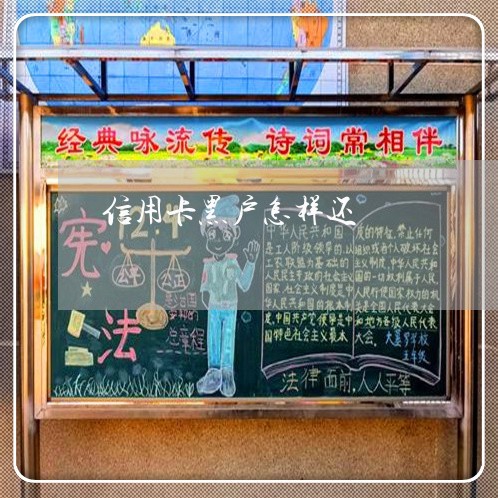 经典咏流传 诗词常相伴
信用卡黑户怎样还
宪法
12.4
公平
公正
总章程
中华人民共和国
是工人阶级领导的,以
工农联盟为基础的
人民民主专政的社会主义
国家,社会主义制度是中
华人民共和国的根本制
度,中国共产党领导是中
国特色社会主义最本
质的特征,禁止任何
组织或者个人破坏社会
主义制度,中华人民共和
国的一切权利属于人民,
人民行使国家权力的机
关是全国人民代表大会
和地方各级人民代表
大会。
五年级
法律面前,人人平等